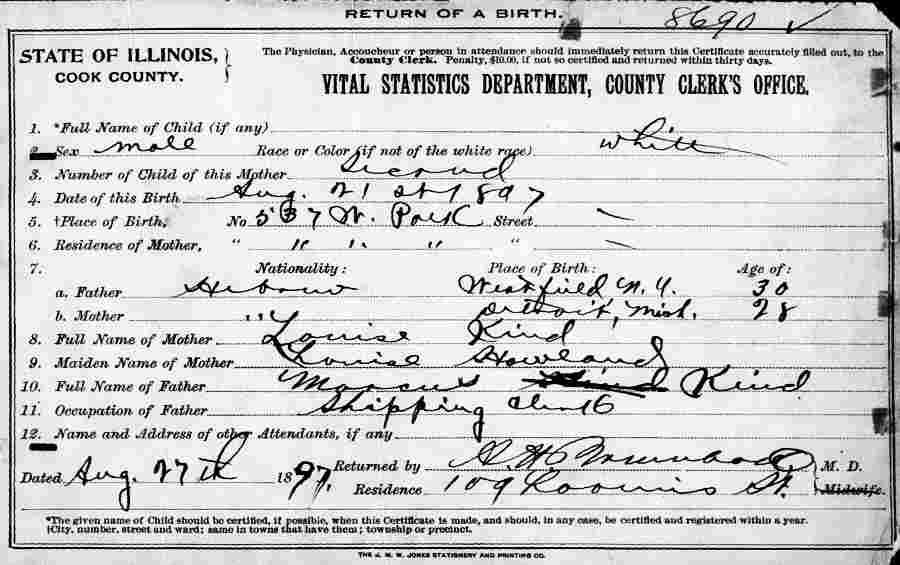 RETURN OF A BIRTH. 8690 ✓
STATE OF ILLINOIS,
COOK COUNTY.
The Physician, Accoucheur or person in attendance should immediately return this Certificate accurately filled out, to the
County Clerk. Penalty, $10.00, if not so certified and returned within thirty days.
VITAL STATISTICS DEPARTMENT, COUNTY CLERK'S OFFICE.
1. *Full Name of Child (if any)
2. Sex male Race or Color (if not of the white race) White
3. Number of Child of this Mother Second
4. Date of this Birth Aug. 21st 1897
5. †Place of Birth, No 537 W. Polk Street —
6. Residence of Mother, " " " " " —
7. Nationality: Place of Birth: Age of:
a. Father Hebrew Westfield N.Y. 30
b. Mother " Detroit, Mich. 28
8. Full Name of Mother Louise Kind
9. Maiden Name of Mother Louise Howland
10. Full Name of Father Marcus Kind Kind
11. Occupation of Father Shipping Clerk
12. Name and Address of other Attendants, if any
Dated Aug. 27th 1897. Returned by M. D.
Residence 109 Loomis St. Midwife.
*The given name of Child should be certified, if possible, when this Certificate is made, and should, in any case, be certified and registered within a year.
†City, number, street and ward; same in towns that have them; township or precinct.
THE J. M. W. JONES STATIONERY AND PRINTING CO.